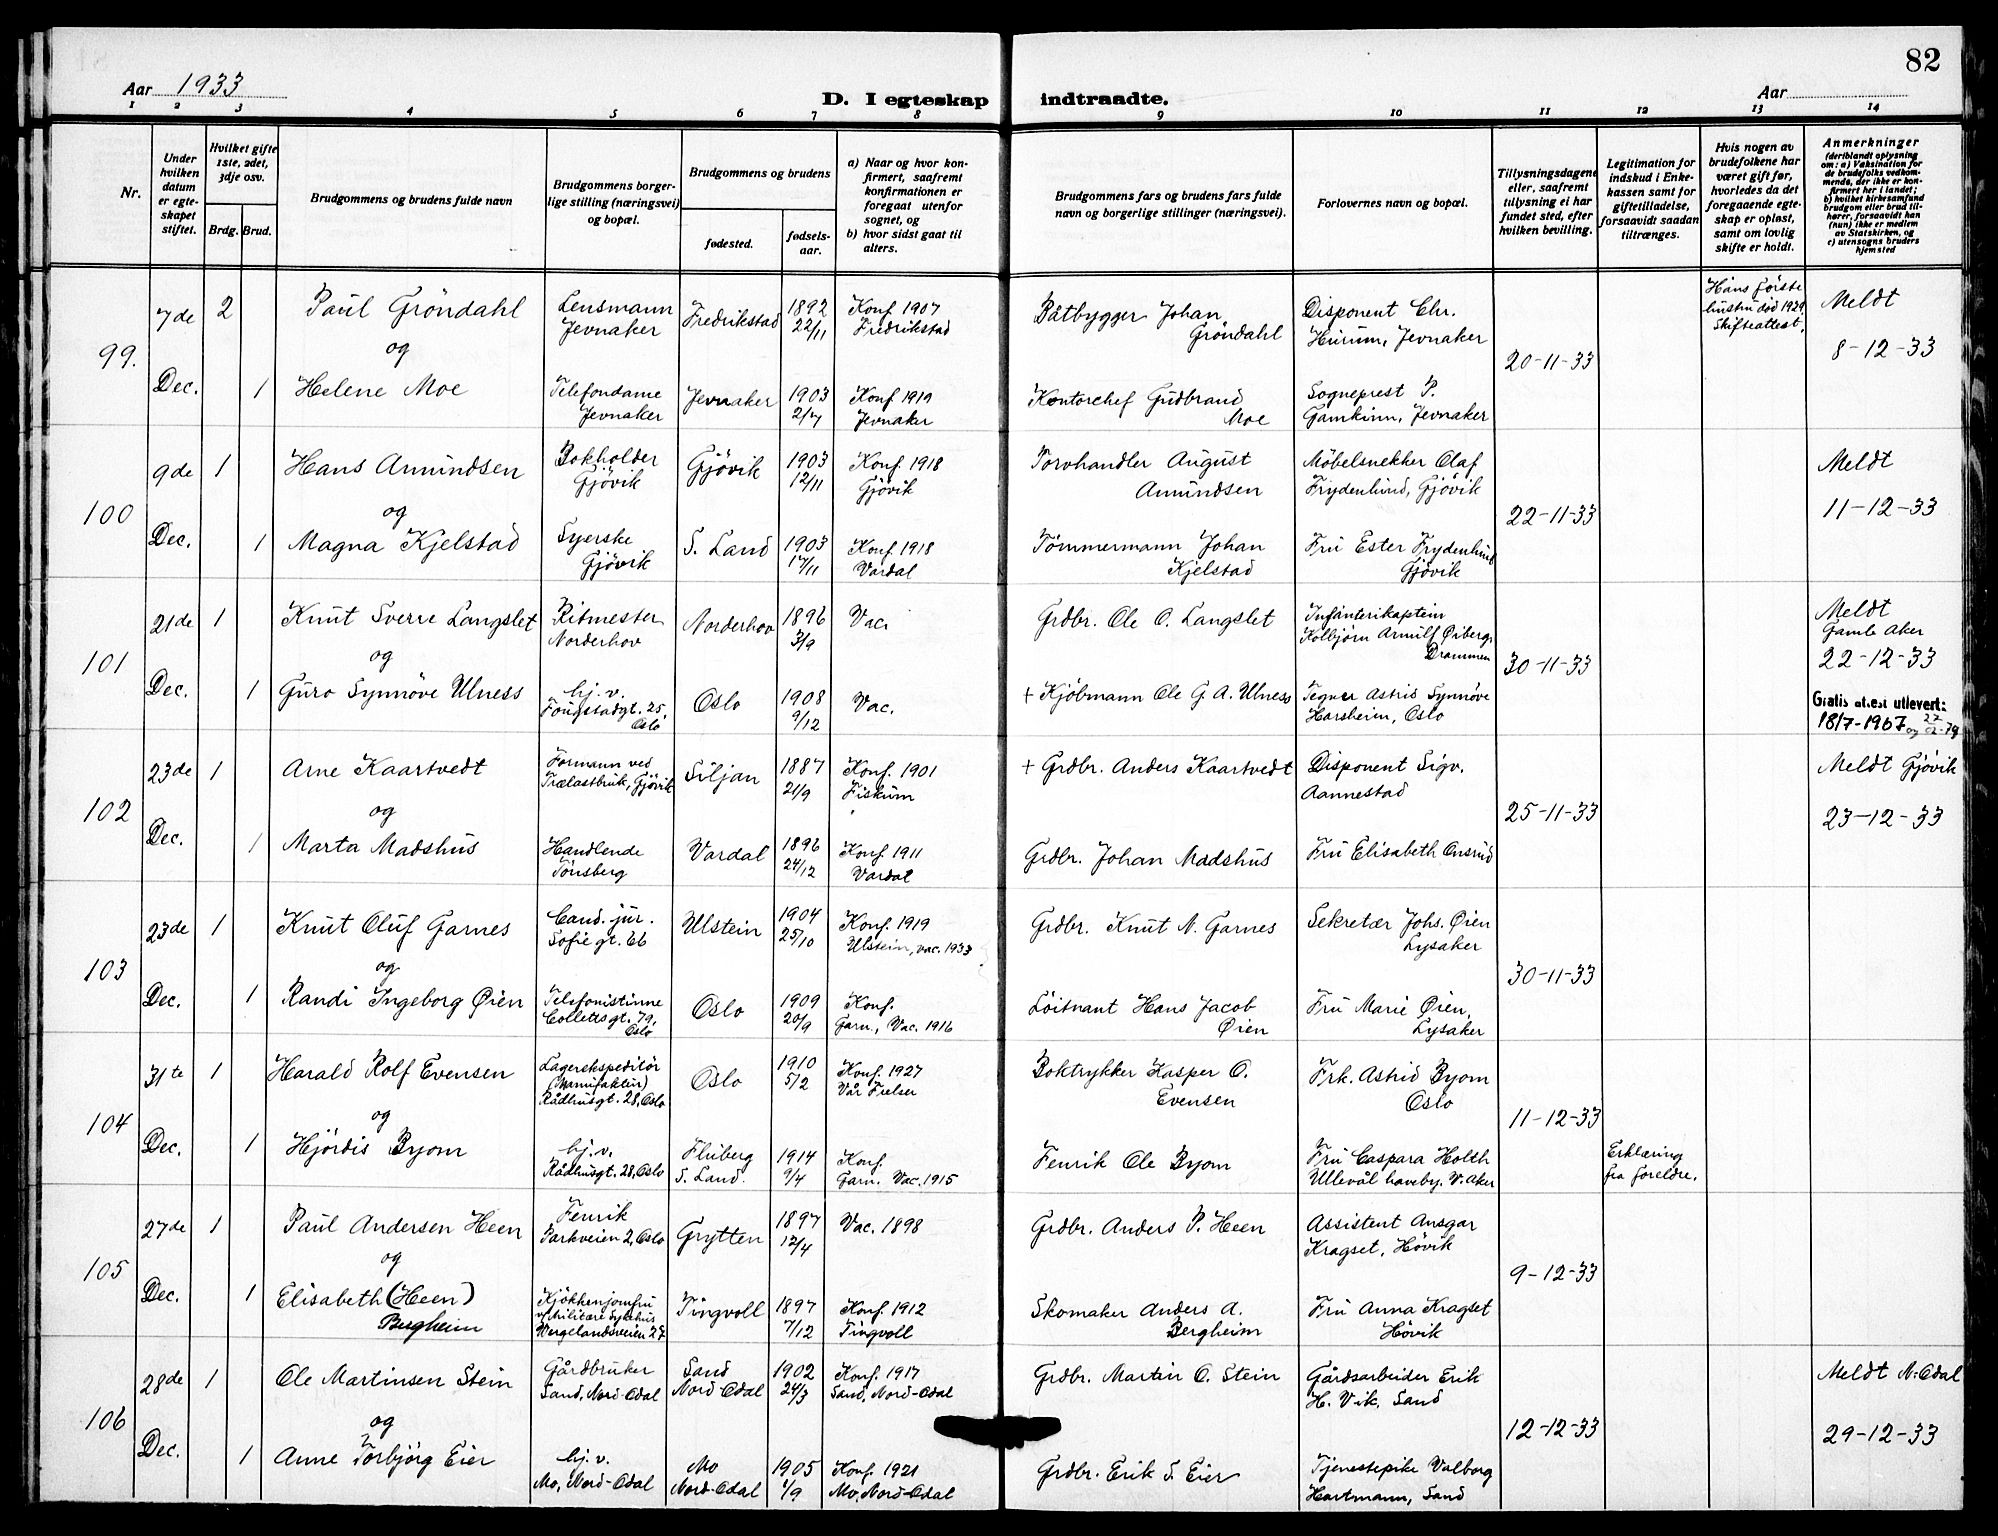 82
Aar 1933
D. I egteskap indtraadte.
Aar
1 2 3 4 5 6 7 8 9 10 11 12 13 14
Nr.
Under hvilken datum er egte-skapet stiftet.
Hvilket gifte 1ste, 2det, 3dje osv.
Brdg. Brud.
Brudgommens og brudens fulde navn
Brudgommens borger-lige stilling (næringsvei) og bopæl.
Brudgommens og brudens
fødested.
fødsels-aar.
a) Naar og hvor kon-firmert, saafremt konfirmationen er foregaat utenfor sognet, og
b) hvor sidst gaat til alters.
Brudgommens fars og brudens fars fulde navn og borgerlige stillinger (næringsvei).
Forlovernes navn og bopæl.
Tillysningsdagene eller, saafremt tillysning ei har fundet sted, efter hvilken bevilling.
Legitimation for indskud i Enke-kassen samt for giftetilladelse, forsaavidt saadan tiltrænges.
Hvis nogen av brudefolkene har været gift før, hvorledes da det foregaaende egte-skap er opløst, samt om lovlig skifte er holdt.
Anmerkninger
(deriblandt oplysning om: a) Vaksination for de brudefolks vedkom-mende, der ikke er kon-firmert her i landet; b) hvilket kirkesamfund brudgom eller brud til-hører, forsaavidt han (hun) ikke er medlem av Statskirken, og c) utensogns bruders hjemsted
99. 7de Dec. 2
Paul Gröndahl
Lensmann Jevnaker
Fredrikstad
1892 22/11
Konf 1907 Fredrikstad
Båtbygger Johan Gröndahl
Disponent Chr. Hurum, Jevnaker
20-11-33
Hans første hustru død 1929 Skifteattest.
Meldt
8-12-33
og
1 Helene Moe
Telefondame Jevnaker
Jevnaker
1903 2/7
Konf 1919 Jevnaker
Kontorchef Gudbrand Moe
Sogneprest P. Gamkinn, Jevnaker
100 9de Dec. 1
Hans Amundsen
Bokholder Gjövik
Gjövik
1903 12/11
Konf. 1918 Gjövik
Torvhandler August Amundsen
Möbelsnekker Olaf Frydenlund, Gjövik
22-11-33
Meldt
11-12-33
og
1 Magna Kjelstad
Syerske Gjövik
S. Land
1903 17/11
Konf. 1918 Vardal
Tömmermann Johan Kjelstad
Fru Ester Frydenlund Gjövik
101 21de Dec. 1
Knut Sverre Langslet
Ritmester Norderhov
Norderhov
1896 3/9
Vac.
Grdbr. Ole O. Langslet
Infanterikaptein Kolbjörn Arnulf Øiberg, Drammen
30-11-33
Meldt Gamle Aker
22-12-33
og
1 Guro Synnöve Ulness
hj. v. Fougstadgt. 25, Oslo
Oslo
1908 9/12
Vac.
+ Kjöbmann Ole G A. Ulness
Tegner Astrid Synnöve Harsheim, Oslo
Gratis attest utlevert:
18/7-1967 og
102 23de Dec. 1
Arne Kaartvedt
Formann ved Trælastbruk, Gjövik
Siljan
1887 21/9
Konf. 1901 Fiskum
+ Grdbr. Anders Kaartvedt
Disponent Sigv. Aannestad
25-11-33
Meldt Gjövik
23-12-33
og
1 Marta Madshus
Handlende Tönsberg
Vardal
1896 24/12
Konf. 1911 Vardal
Grdbr. Johan Madshus
Fru Elisabeth Onsrud
103 23de Dec. 1
Knut Oluf Garnes
Cand. jur. Sofie gt. 66
Ulstein
1904 25/10
Konf. 1919 Ulstein, vac. 1933
Grdbr. Knut N. Garnes
Sekretær Johs. Øien Lysaker
30-11-33
og
1 Randi Ingeborg Øien
Telefonistinne Colletsgt. 79, Oslo
Oslo
1909 20/9
Konf. Garn., Vac. 1916
Löitnant Hans Jacob Øien
Fru Marie Øien, Lysaker
104 31te Dec. 1
Harald Rolf Evensen
Lagerekspeditör (Manufaktur) Rådhusgt. 28, Oslo
Oslo
1910 5/2
Konf. 1927 Vår Frelser
Boktrykker Kasper O. Evensen
Frk. Astrid Byom Oslo
11-12-33
og
1 Hjördis Byom
hj. v. Rådhusgt. 28, Oslo
Fluberg S. Land.
1914 9/4
Konf. Garn. Vac. 1915
Fenrik Ole Byom
Fru Caspara Holth Ullevål haveby. V. Aker
Erklæring fra foreldre.
105 27de Dec. 1
Paul Andersen Heen
Fenrik Parkveien 2, Oslo
Grytten
1897 12/4
Vac. 1898
Grdbr. Anders P. Heen
Assistent Ansgar Kragset, Hövik
9-12-33
og
1 Elisabeth (Heen) Bergheim
Kjökkenjomfru v/Militære Sykehus Wergelandsveien 27
Tingvoll
1897 7/12
Konf. 1912 Tingvoll
Skomaker Anders A. Bergheim
Fru Anna Kragset Hövik
106 28de Dec. 1
Ole Martinsen Stein
Gårdbruker Sand, Nord-Odal
Sand Nord-Odal
1902 24/3
Konf. 1917 Sand, Nord-Odal
Grdbr. Martin O. Stein
Gårdsarbeider Erik H. Vik, Sand
12-12-33
Meldt N. Odal
29-12-33
og
1 Anne Torbjörg Eier
hj. v. Mo, Nord-Odal
Mo Nord-Odal
1905 1/9
Konf. 1921 Mo, Nord-Odal
Grdbr. Erik S. Eier
Tjenestepike Valborg Hartmann, Sand